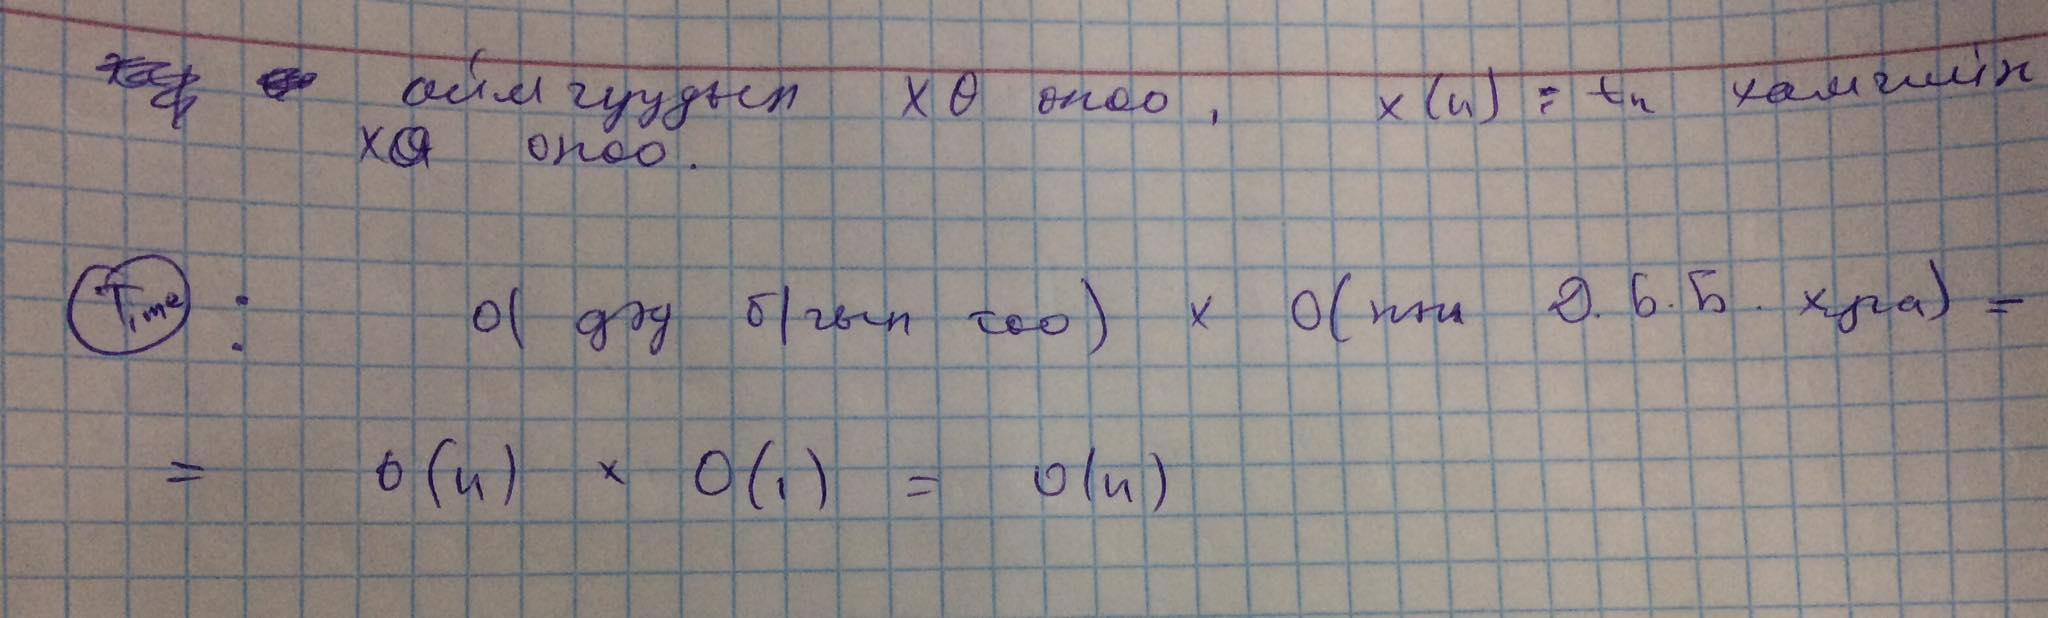 оймгуудын ХӨ оноо, x(n) = tn хамгийн
ХӨ оноо.
Time : O( дэд б/гын тоо) × O(нэг Д.Б.Б. хуга) =
= O(n) × O(1) = O(n)